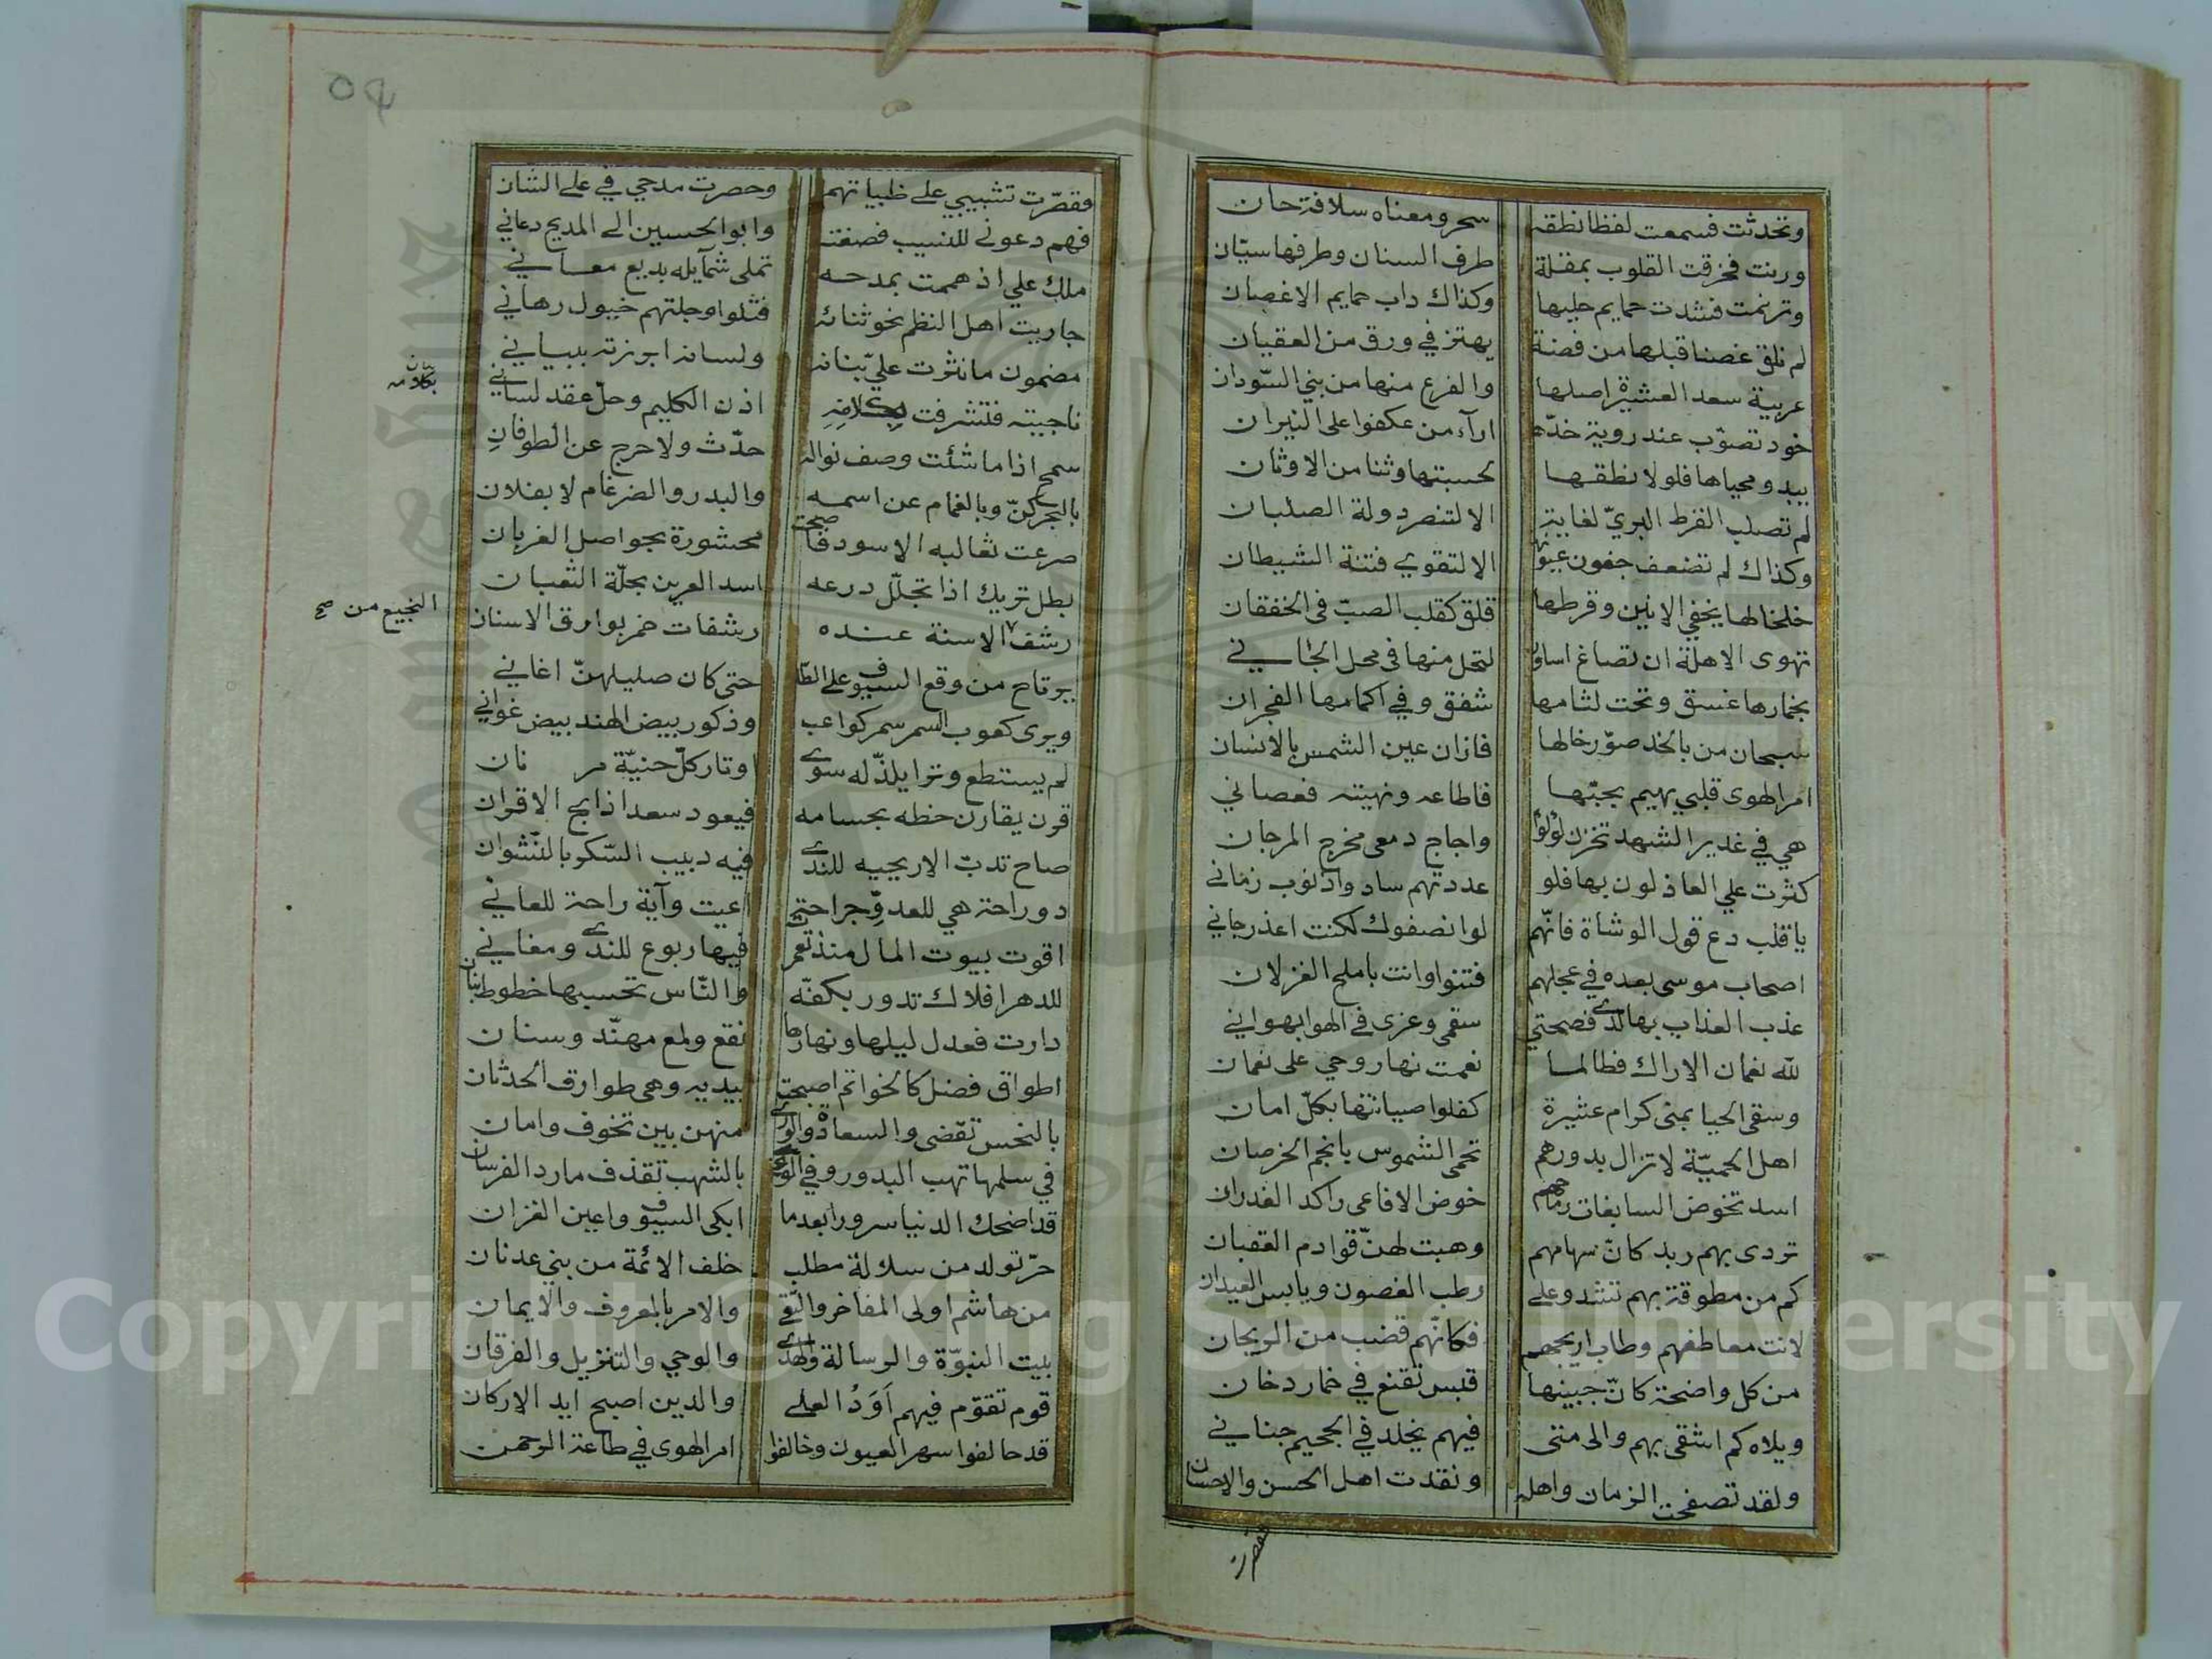 وتحدثت فسمعت لفظا نطقه سحر ومعناه سلافة حان
ورنت فخرقت القلوب بمقلة طرف السنان وطرفها سيّان
وترنمت فشدت حمايم حليها وكذاك داب حمايم الاغصان
لم نلق غصنا قبلها من فضة يهتز في ورق من العقيان
عربية سعد العشيرة اصلها والفرع منها من بني السّودان
خود تصوّب عند روية خدّها ارآء من عكفوا على النيران
يبدو محياها فلولا نطقها لحسبتها وثنا من الاوثان
لم تصلب القرط البريّ لغاية الا لتنصر دولة الصلبان
وكذاك لم تضعف جفون عيونها الا لتقوي فتنة الشيطان
خلخالها يخفي الانين وقرطها قلق كقلب الصبّ في الخفقان
تهوى الاهلة ان تصاغ اساورا لتحل منها في محل الجاني
بخمارها غسق وتحت لثامها شفق وفي اكمامها الفجران
سبحان من بالخد صوّر خالها فازان عين الشمس بالانسان
امر الهوى قلبي يهيم بحبّها فاطاعه ونهيته فعصاني
هي في غدير الشهد تخزن لؤلؤا واجاج دمعى مخرج المرجان
كثرت علي العاذلون بها فلو عددتهم ساد واذنوب زماني
ياقلب دع قول الوشاة فانّهم لو انصفوك لكنت اعذر جاني
اصحاب موسى بعده في عجلهم فتنوا وانت باملح الغزلان
عذب العذاب بها لديّ فصحتي سقمى وعزى في الهوا بهواني
لله نعمان الاراك فطالما نعمت نها روحي على نعمان
وسقى الحيا بمنى كرام عشيرة كفلوا صيانتها بكلّ امان
اهل الحميّة لا تزال بدورهم تحمى الشموس بانجم الخرصان
اسد تخوض السابغات رماحهم خوض الافاعى راكد الغدران
تردى بهم ربد كانّ سهامهم وهبت لهنّ قوادم العقبان
كم من مطوقة بهم تشدو على رطب الغصون ويابس العيدان
لانت معاطفهم وطاب اريجهم فكانّهم قضب من الريحان
من كل واضحة كانّ جبينها قبس تقنع في خمار دخان
ويلاه كم اشقى بهم والى متى فيهم يخلد في الجحيم جناني
ولقد تصفحت الزمان واهله ونقدت اهل الحسن والاحسان
فقصرت
فقصّرت تشبيبي على ظبياتهم وحصرت مدحي في علي الشان
فهم دعوني للنسيب فصغته وابو الحسين الى المديح دعاني
ملك علي اذ هممت بمدحه تملى شمايله بديع معاني
جاريت اهل النظم نحو ثنائه فتلوا وحلتهم خيول رهاني
مضمون ما نثرت عليّ بنانه ولسانه ابرزته ببياني
ناجيته فتشرفت بكلامه اذن الكليم وحلّ عقد لساني
بكلامه
سمح اذا ما شئت وصف نواله حدّث ولا حرج عن الطوفان
بالبحر كنّ وبالغمام عن اسمه والبدر والضرغام لا بفلان
صرعت ثعالبه الاسود فاصبحت محشورة بحواصل الغربان
بطل يريك اذا تجلّل درعه اسد العرين بحلّة الثعبان
رشف الاسنة عنده رشفات خمر بوارق الاسنان
النجيع من صح
يرتاح من وقع السيوف على الطلا حتى كان صليلهنّ اغاني
ويرى كعوب السمر سمر كواعب وذكور بيض الهند بيض غواني
لم يستطع وترا يلذّ له سوى اوتار كلّ حنيّة مر نان
قرن يقارن خطه بحسامه فيعود سعدا ذابح الاقران
صاح تدبّ الاريحيه للندى فيه دبيب السّكر بالنّشوان
دو راحة هي للعدوّ جراحة اعيت وآية راحة للعاني
اقوت بيوت المال منذ تعمرت فيها ربوع للندى ومغاني
للدهر افلاك تدور بكفّه والنّاس تحسبها خطوط بنان
دارت فعدل ليلها ونهارها نقع ولمع مهنّد وسنان
اطواق فضل كالخواتم اصبحت بيديه وهى طوارق الحدثان
بالنحس تقضى والسعادة والورى منهن بين تخوف وامان
في سلمها تهب البدور وفي الوغى بالشهب تقذف مارد الفرسان
قد اضحك الدنيا سرورا بعدما ابكى السيوف واعين الغزلان
حرّ تولد من سلالة مطلب خلف الائمة من بني عدنان
من هاشم اولى المفاخر والتّقى والامر بالمعروف والايمان
بيت النبوّة والرسالة والهدى والوحي والتنزيل والفرقان
قوم تقوّم فيهم اَوَدُ العلى والدين اصبح ايد الاركان
قد حالفوا سهر العيون وخالفوا امر الهوى في طاعة الرحمن